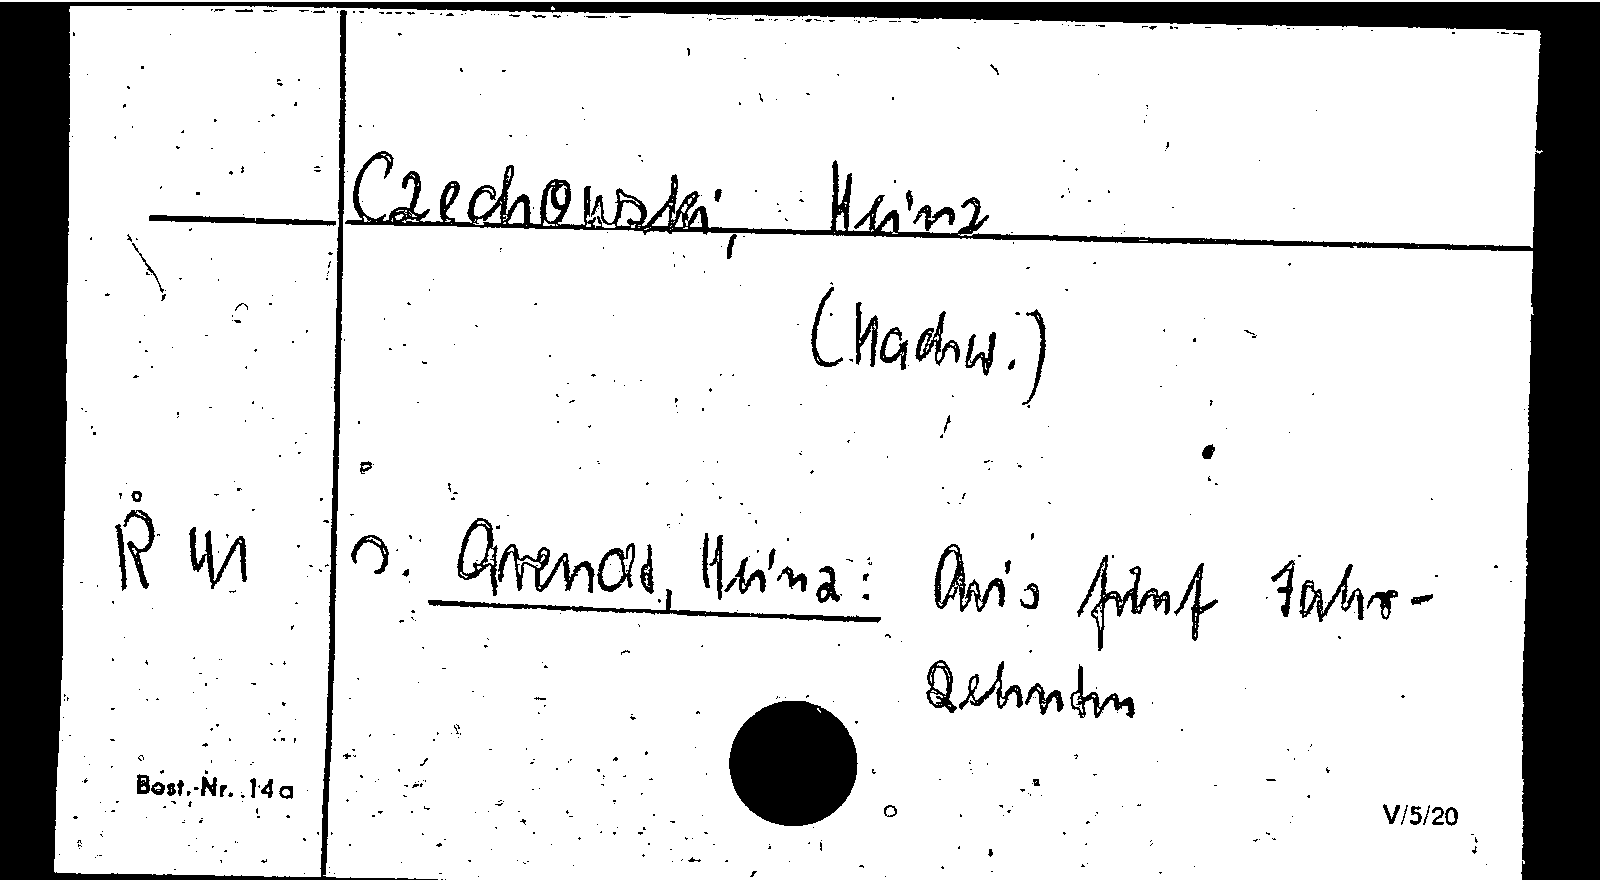 Czechowski, Heinz
(Nachw.)
R 41 s. Arendt, Heinz: Aus fünf Jahr-
zehnten
Best.-Nr. 14a
V/5/20